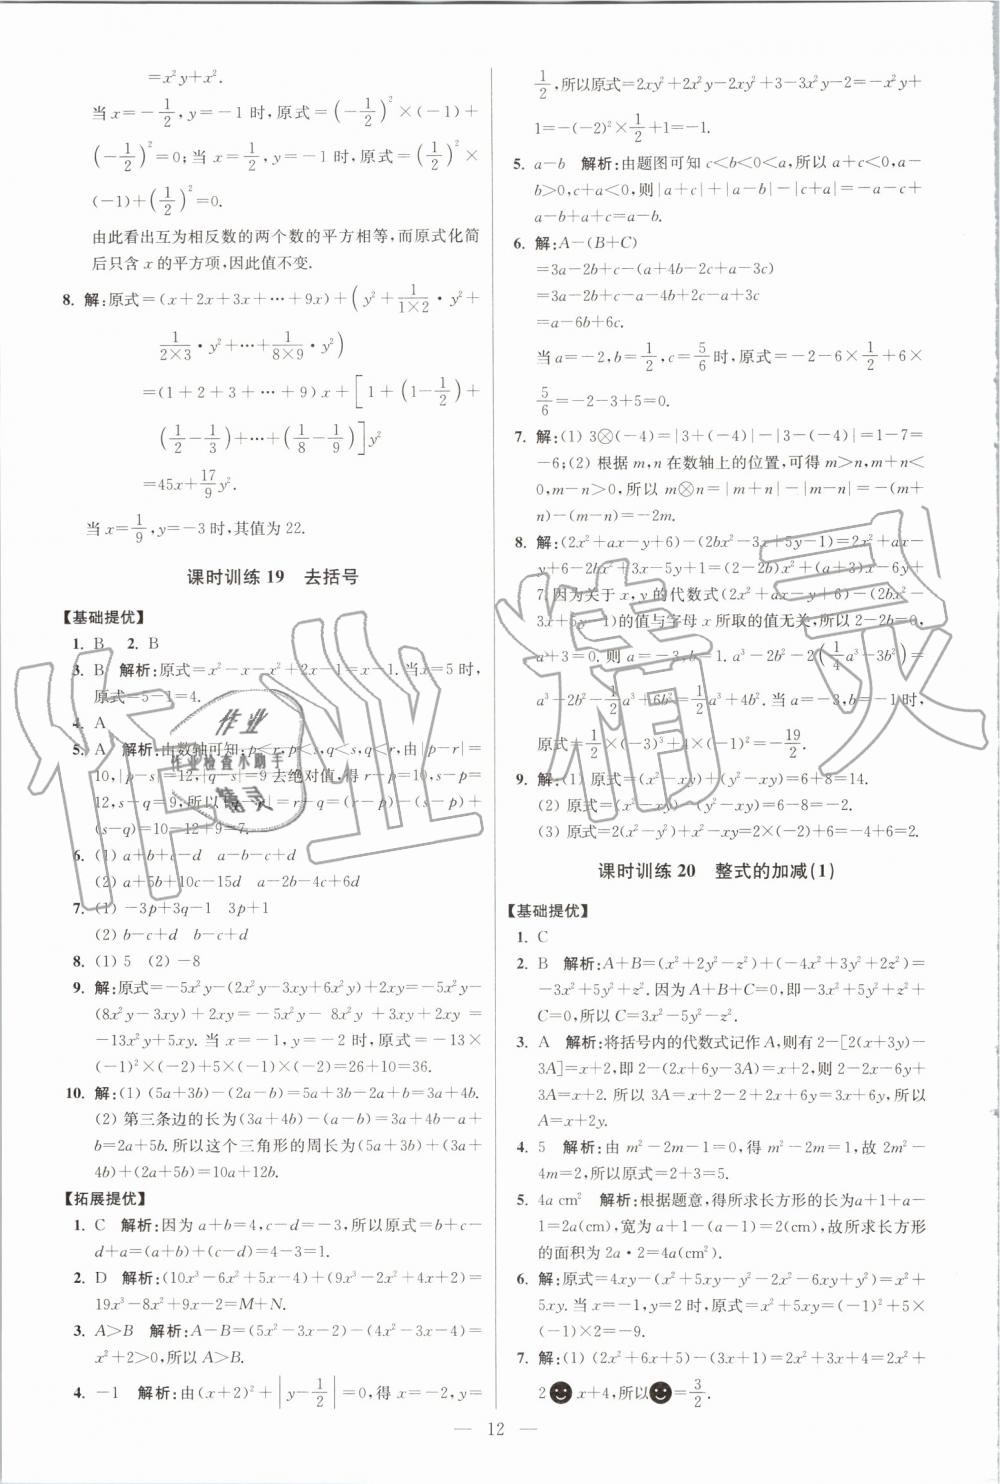 =x²y+x².
当 x=-1/2, y=-1 时,原式=(-1/2)²×(-1)+
(-1/2)²=0;当 x=1/2, y=-1 时,原式=(1/2)²×
(-1)+(1/2)²=0.
由此看出互为相反数的两个数的平方相等,而原式化简
后只含 x 的平方项,因此值不变.
8. 解:原式=(x+2x+3x+…+9x)+(y²+1/(1×2)·y²+
1/(2×3)·y²+…+1/(8×9)·y²)
=(1+2+3+…+9)x+[1+(1-1/2)+
(1/2-1/3)+…+(1/8-1/9)]y²
=45x+17/9y².
当 x=1/9, y=-3 时,其值为 22.
课时训练 19 去括号
【基础提优】
1. B 2. B
3. B 解析:原式=x²-x-x²+2x-1=x-1.当 x=5 时,
原式=5-1=4.
4. A
5. A 解析:由数轴可知,p<r,p<s,q<s,q<r,由|p-r|=
10,|p-s|=12,|q-s|=9 去绝对值,得 r-p=10,s-p=
12,s-q=9,所以|q-r|=r-q=(r-p)-(s-p)+
(s-q)=10-12+9=7.
6. (1) a+b+c-d a-b-c+d
(2) a+5b+10c-15d a-b-c+d
7. (1) -3p+3q-1 3p+1
(2) b-c+d b-c+d
8. (1) 5 (2) -8
9. 解:原式=-5x²y-(2x²y-3xy+6x²y)+2xy=-5x²y-
(8x²y-3xy)+2xy=-5x²y-8x²y+3xy+2xy=
-13x²y+5xy.当 x=-1,y=-2 时,原式=-13×
(-1)²×(-2)+5×(-1)×(-2)=26+10=36.
10. 解:(1) (5a+3b)-(2a-b)=5a+3b-2a+b=3a+4b.
(2) 第三条边的长为(3a+4b)-(a-b)=3a+4b-a+
b=2a+5b.所以这个三角形的周长为(5a+3b)+(3a+
4b)+(2a+5b)=10a+12b.
【拓展提优】
1. C 解析:因为 a+b=4,c-d=-3,所以原式=b-c+
d+a=(a+b)+(d-c)=4-3=1.
2. D 解析:(10x³-6x²+5x-4)+(9x³-2x²+4x+2)=
19x³-8x²+9x-2=M+N.
3. A>B 解析:A-B=(5x²-3x-2)-(4x²-3x-4)=
x²+2>0,所以 A>B.
4. -1 解析:由(x+2)²+|y-1/2|=0,得 x=-2,y=
1/2,所以原式=2xy²+2x²y-2xy²+3-3x²y-2=-x²y+
1=-(-2)²×1/2+1=-1.
5. a-b 解析:由题图可知 c<b<0<a,所以 a+c<0,a-
b>0,c+a<0,则|a+c|+|a-b|-|c+a|=-a-c+
a-b+a+c=a-b.
6. 解:A-(B+C)
=3a-2b+c-(a+4b-2c+a-3c)
=3a-2b+c-a-4b+2c-a+3c
=a-6b+6c.
当 a=-2,b=1/2,c=5/6时,原式=-2-6×1/2+6×
5/6=-2-3+5=0.
7. 解:(1) 3⊗(-4)=|3+(-4)|-|3-(-4)|=1-7=
-6;(2) 根据 m,n 在数轴上的位置,可得 m>n,m+n<
0,m-n>0,所以 m⊗n=|m+n|-|m-n|=-(m+
n)-(m-n)=-2m.
8. 解:(2x²+ax-y+6)-(2bx²-3x+5y-1)=2x²+ax-
y+6-2bx²+3x-5y+1=(2-2b)x²+(a+3)x-6y+
7.因为关于 x,y 的代数式(2x²+ax-y+6)-(2bx²-
3x+5y-1)的值与字母 x 所取的值无关,所以 2-2b=0,
a+3=0.则 a=-3,b=1. a³-2b²-2(1/4a³-3b²)=
a³-2b²-1/2a³+6b²=1/2a³+4b².当 a=-3,b=1 时,
原式=1/2×(-3)³+4×1²=-19/2.
9. 解:(1) 原式=(x²-xy)+(xy-y²)=6+8=14.
(2) 原式=(x²-xy)-(y²-xy)=6-8=-2.
(3) 原式=2(x²-y²)+x²-xy=2×(-2)+6=-4+6=2.
课时训练 20 整式的加减(1)
【基础提优】
1. C
2. B 解析:A+B=(x²+2y²-z²)+(-4x²+3y²+2z²)=
-3x²+5y²+z².因为 A+B+C=0,即-3x²+5y²+z²+
C=0,所以 C=3x²-5y²-z².
3. A 解析:将括号内的代数式记作 A,则有 2-[2(x+3y)-
3A]=x+2,即 2-(2x+6y-3A)=x+2,2-2x-6y+
3A=x+2.所以 3A=x+2-2+2x+6y=3x+6y,所以
A=x+2y.
4. 5 解析:由 m²-2m-1=0,得 m²-2m=1,故 2m²-
4m=2,所以原式=2+3=5.
5. 4a cm² 解析:根据题意,得所求长方形的长为a+1+a-
1=2a(cm),宽为 a+1-(a-1)=2(cm),故所求长方形
的面积为 2a·2=4a(cm²).
6. 解:原式=4xy-(x²+5xy-y²-2x²-6xy+y²)=x²+
5xy.当 x=-1,y=2 时,原式=x²+5xy=(-1)²+5×
(-1)×2=-9.
7. 解:(1) (2x²+6x+5)-(3x+1)=2x²+3x+4=2x²+
2☻x+4,所以☻=3/2.
— 12 —
作业精灵
作业
作业检查小助手
精灵